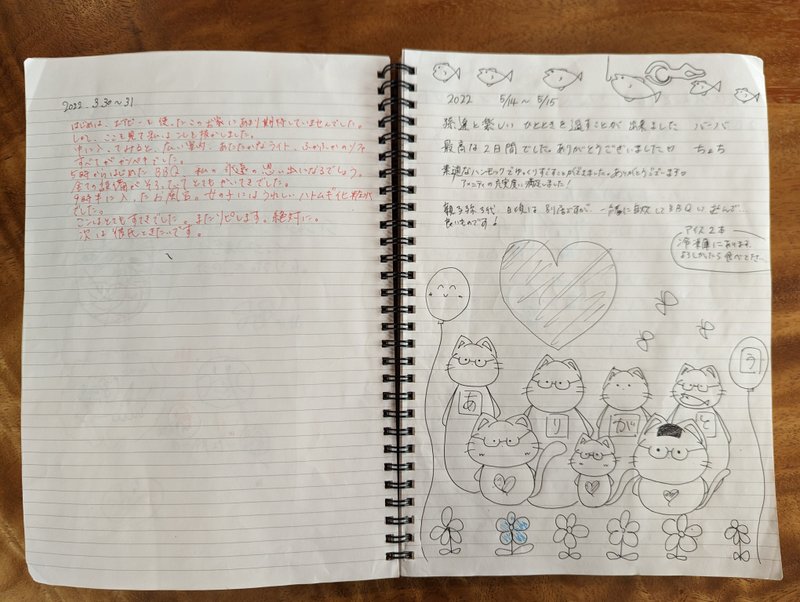 2022. 3.30〜31
はじめは、エアビーを使ったこのお家にあまり期待していませんでした。
しかし、ここを見て私はこしを抜かしました。
中に入ってみると、広い室内、あたたかなライト、ふかふかのソファ
すべてがかんぺきでした。
5時からはじめたBBQ、私の永遠の思い出になるでしょう。
全ての設備がそろっててとてもかいてきでした。
9時半に入ったお風呂。女の子にはうれしいハトムギ化粧水
でした。
ここはとてもすてきでした。またリピします。絶対に。
次は彼氏ときたいです。
2022 5/14〜5/15
孫達と楽しいひとときを過すことが出来ました バーバ
最高な2日間でした。ありがとうございました♡ ちょち
素適なハンモックでゆっくりすごすことができました。ありがとうございます♡
アメニティの充実度に満足しました!
親子孫3代 日頃は別居ですが、一緒に
BBQ
良いものです!
アイス2本
冷凍庫にあります。
よろしかったら食べて下さい
う
あ
り
が
と